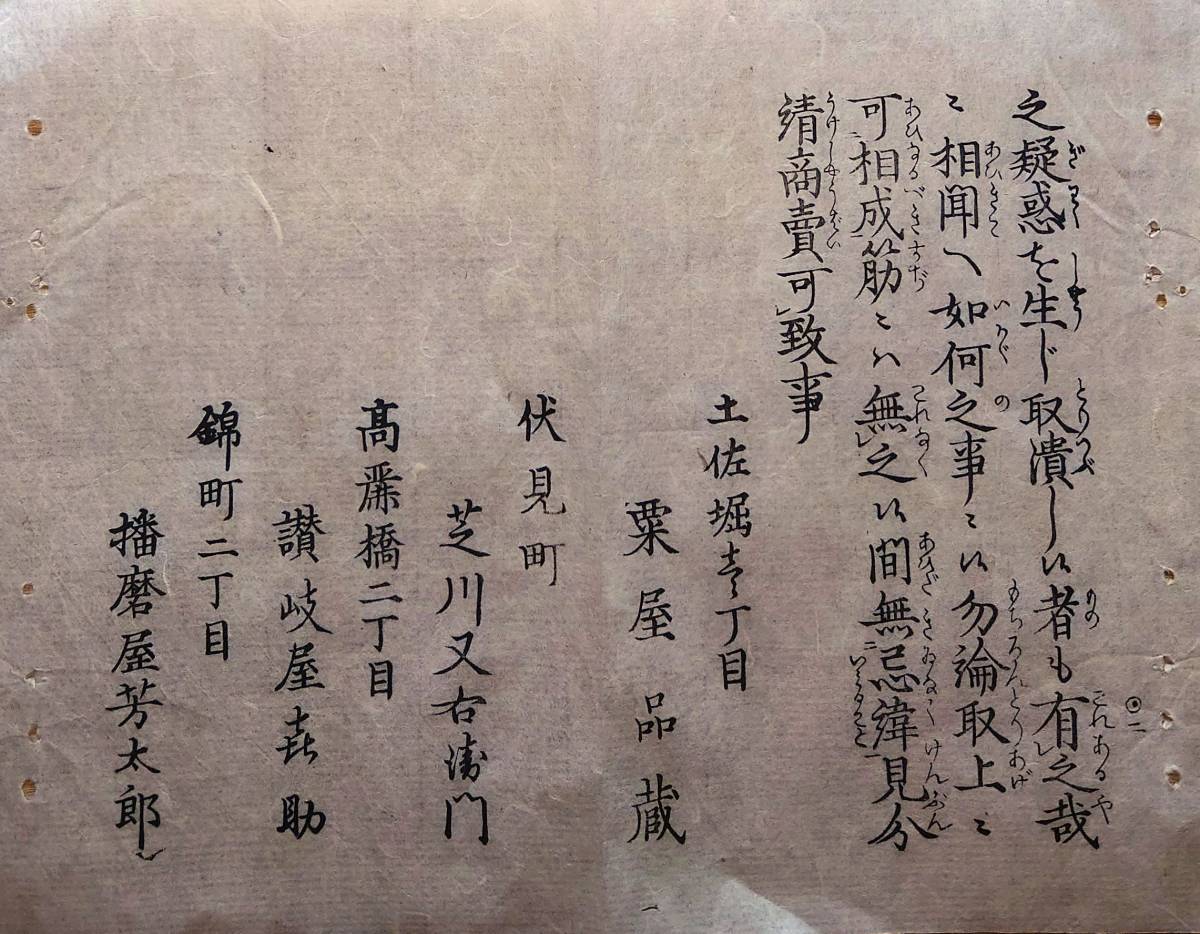 之疑惑を生じ取潰し候者も有之哉
ニ相聞へ如何之事ニ候勿論取上ニ
可相成筋ニハ無之候間無忌諱見分
請商賣可致事
土佐堀壱丁目
粟屋品蔵
伏見町
芝川又右衛門
高麗橋二丁目
讃岐屋㐂助
錦町二丁目
播磨屋芳太郎